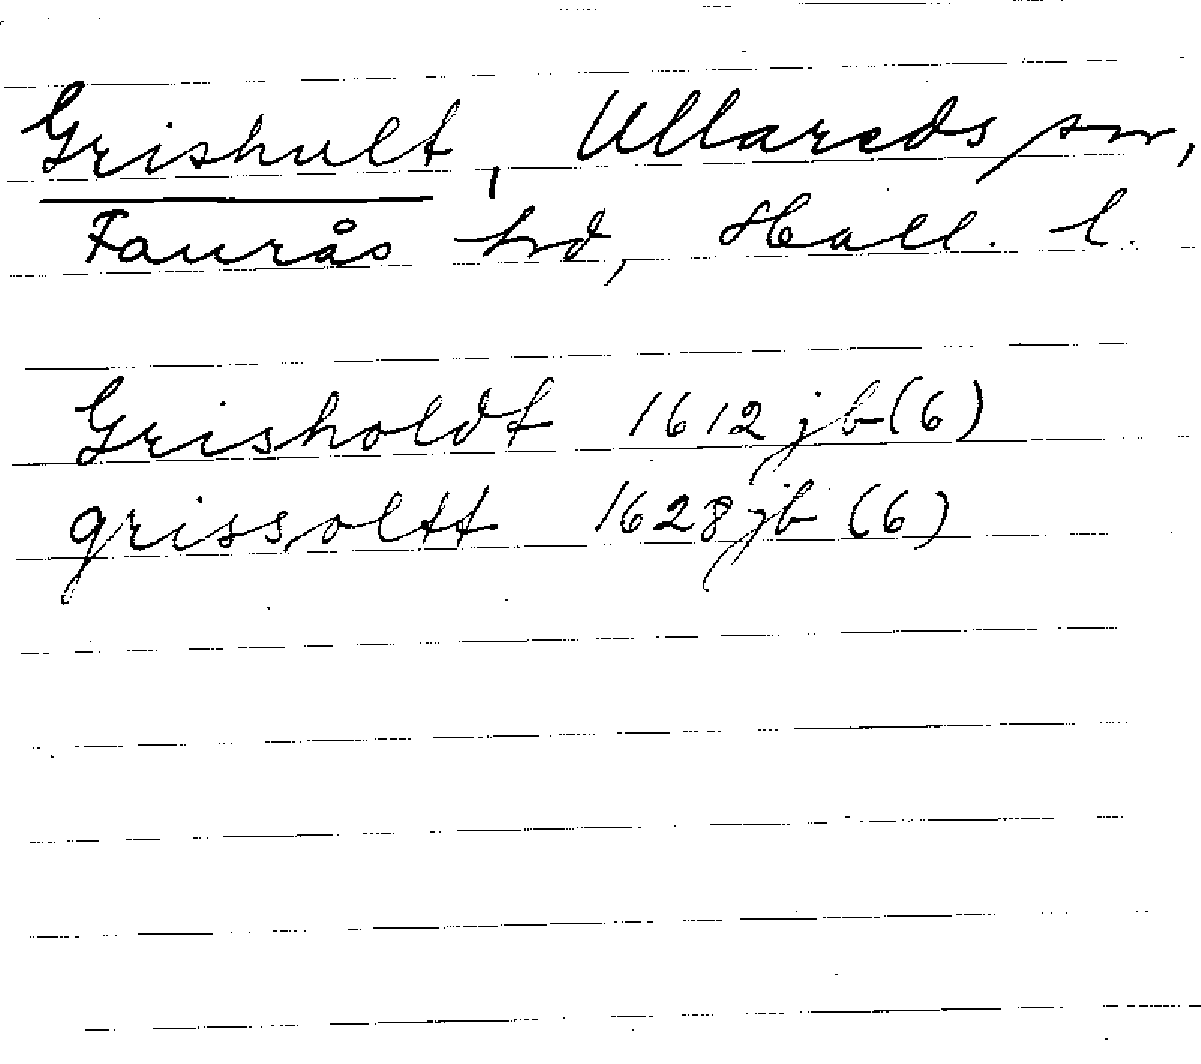 Grishult, Ullareds sn,
Faurås hd, Hall. l.
Grisholdt 1612 jb (6)
grissoltt 1628 jb (6)